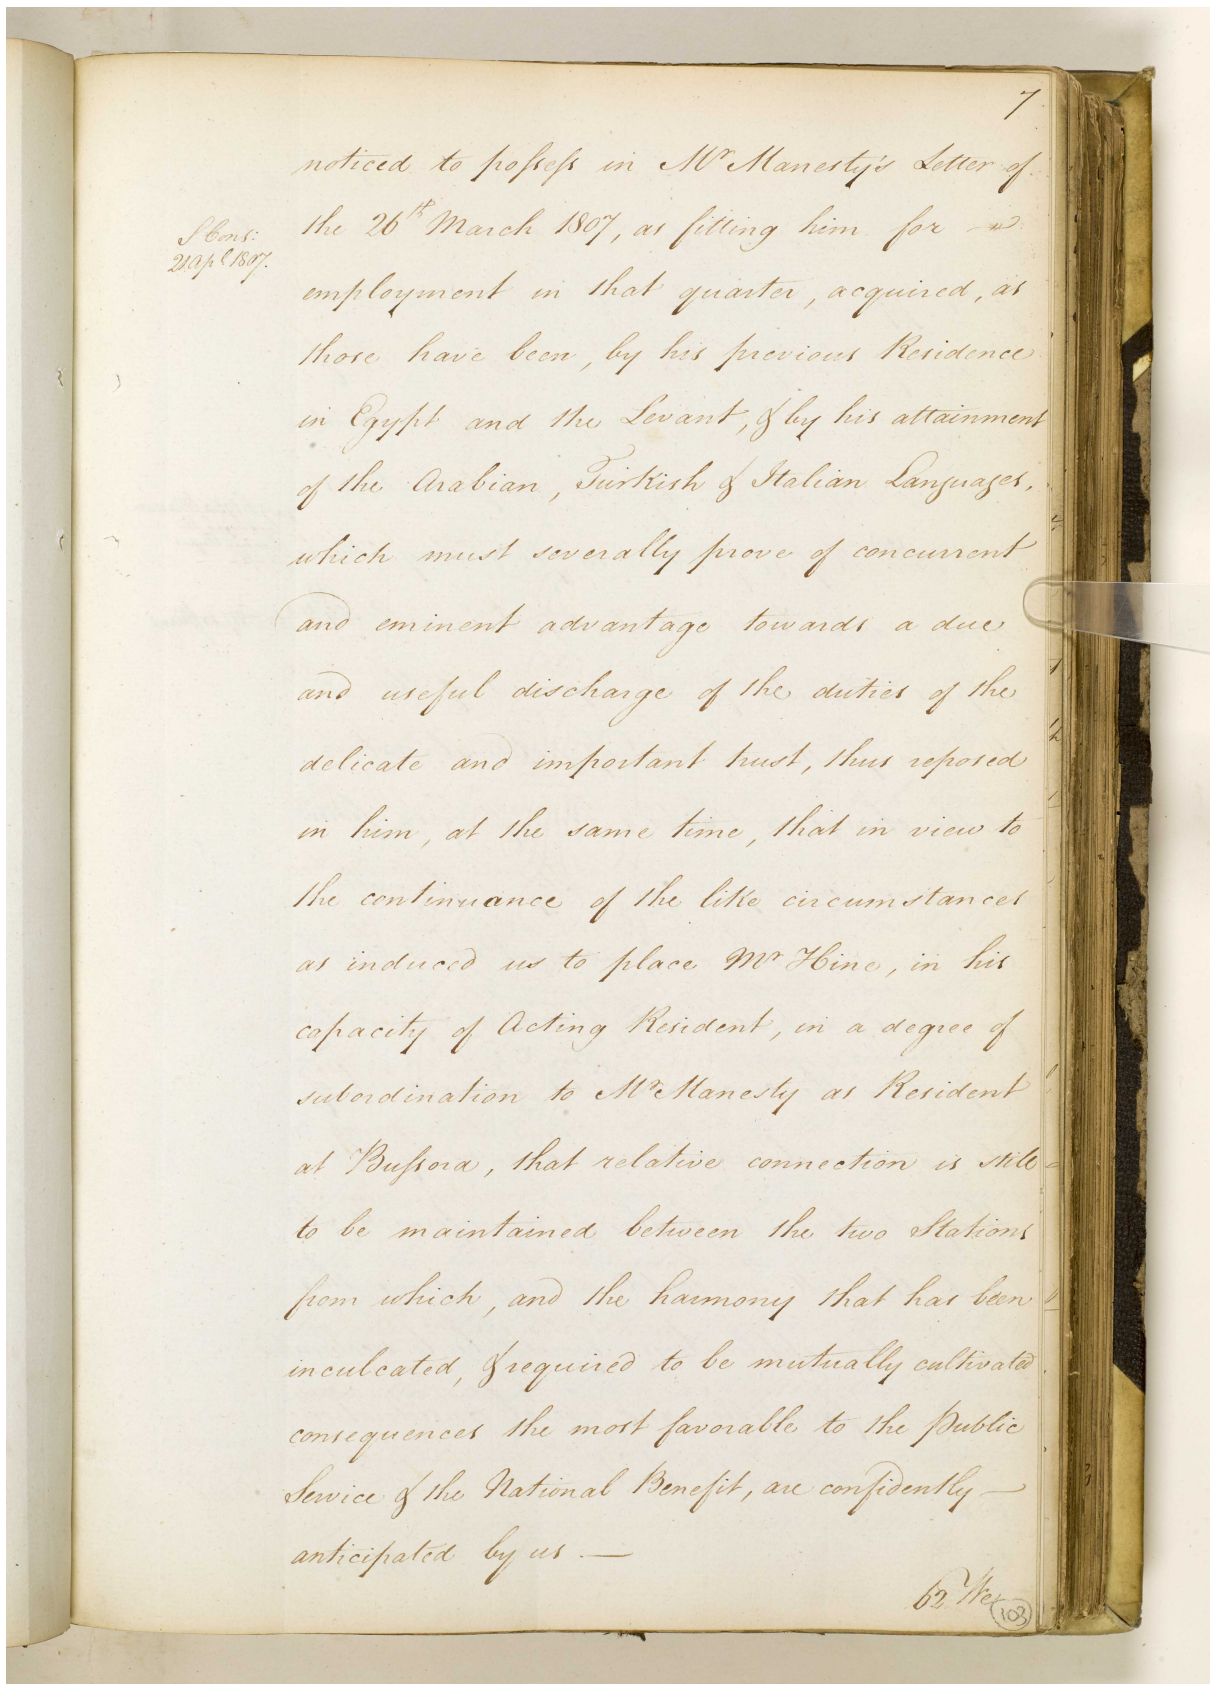 7
noticed to possess in Mr Manesty's Letter of
S Cons:
21 Apl 1807.
the 26th March 1807, as fitting him for
employment in that quarter, acquired, as
those have been, by his previous Residence
in Egypt and the Levant, & by his attainment
of the Arabian, Turkish & Italian Languages,
which must severally prove of concurrent
and eminent advantage towards a due
and useful discharge of the duties of the
delicate and important trust, thus reposed
in him, at the same time, that in view to
the continuance of the like circumstances
as induced us to place Mr Hine, in his
capacity of Acting Resident, in a degree of
subordination to Mr Manesty as Resident
at Bussora, that relative connection is still
to be maintained between the two Stations
from which, and the harmony that has been
inculcated, & required to be mutually cultivated
consequences the most favorable to the Public
Service & the National Benefit, are confidently —
anticipated by us. —
62 We
103